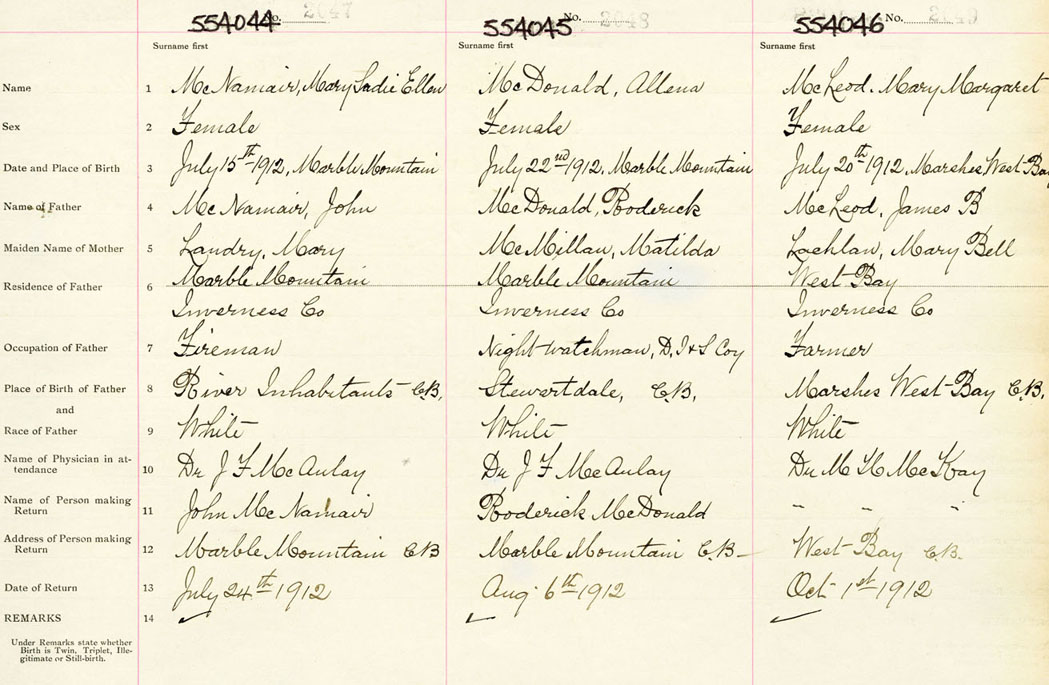 554044 No. 2047 554045 No. 2048 554046 No.
Surname first Surname first Surname first
Name 1 McNamair, Mary Sadie Ellen McDonald, Allena McLeod. Mary Margaret
Sex 2 Female Female Female
Date and Place of Birth 3 July 15th 1912, Marble Mountain July 22nd 1912, Marble Mountain July 20th 1912, Marshes West Bay
Name of Father 4 McNamair, John McDonald, Roderick McLeod, James B
Maiden Name of Mother 5 Landry, Mary McMillan, Matilda Lochlan, Mary Bell
Residence of Father 6 Marble Mountain Marble Mountain West Bay
Inverness Co Inverness Co Inverness Co
Occupation of Father 7 Fireman Night watchman, D, I & S Coy Farmer
Place of Birth of Father 8 River Inhabitants C.B, Stewartdale, C.B, Marshes West Bay C.B.
and
Race of Father 9 White White White
Name of Physician in at-
tendance 10 Dr J F McAulay Dr J F McAulay Dr M H McKay
Name of Person making
Return 11 John McNamair Roderick McDonald " " "
Address of Person making
Return 12 Marble Mountain CB Marble Mountain C.B- West Bay C.B.
Date of Return 13 July 24th 1912 Aug 6th 1912 Oct 1st 1912
REMARKS 14 ✓ ✓ ✓
Under Remarks state whether
Birth is Twin, Triplet, Ille-
gitimate or Still-birth.